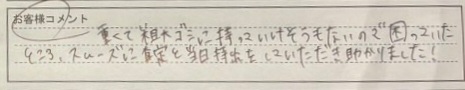 お客様コメント
重くて粗大ゴミに持っていけそうもないので困っていた
ところ、スムーズに査定と当日持出をしていただき助かりました!